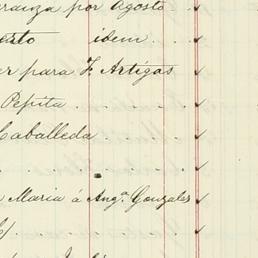 ranza por Agosto
erto idem.
ar para F. Artigas
Pepita
Caballeda
Maria á Angª Gonzales